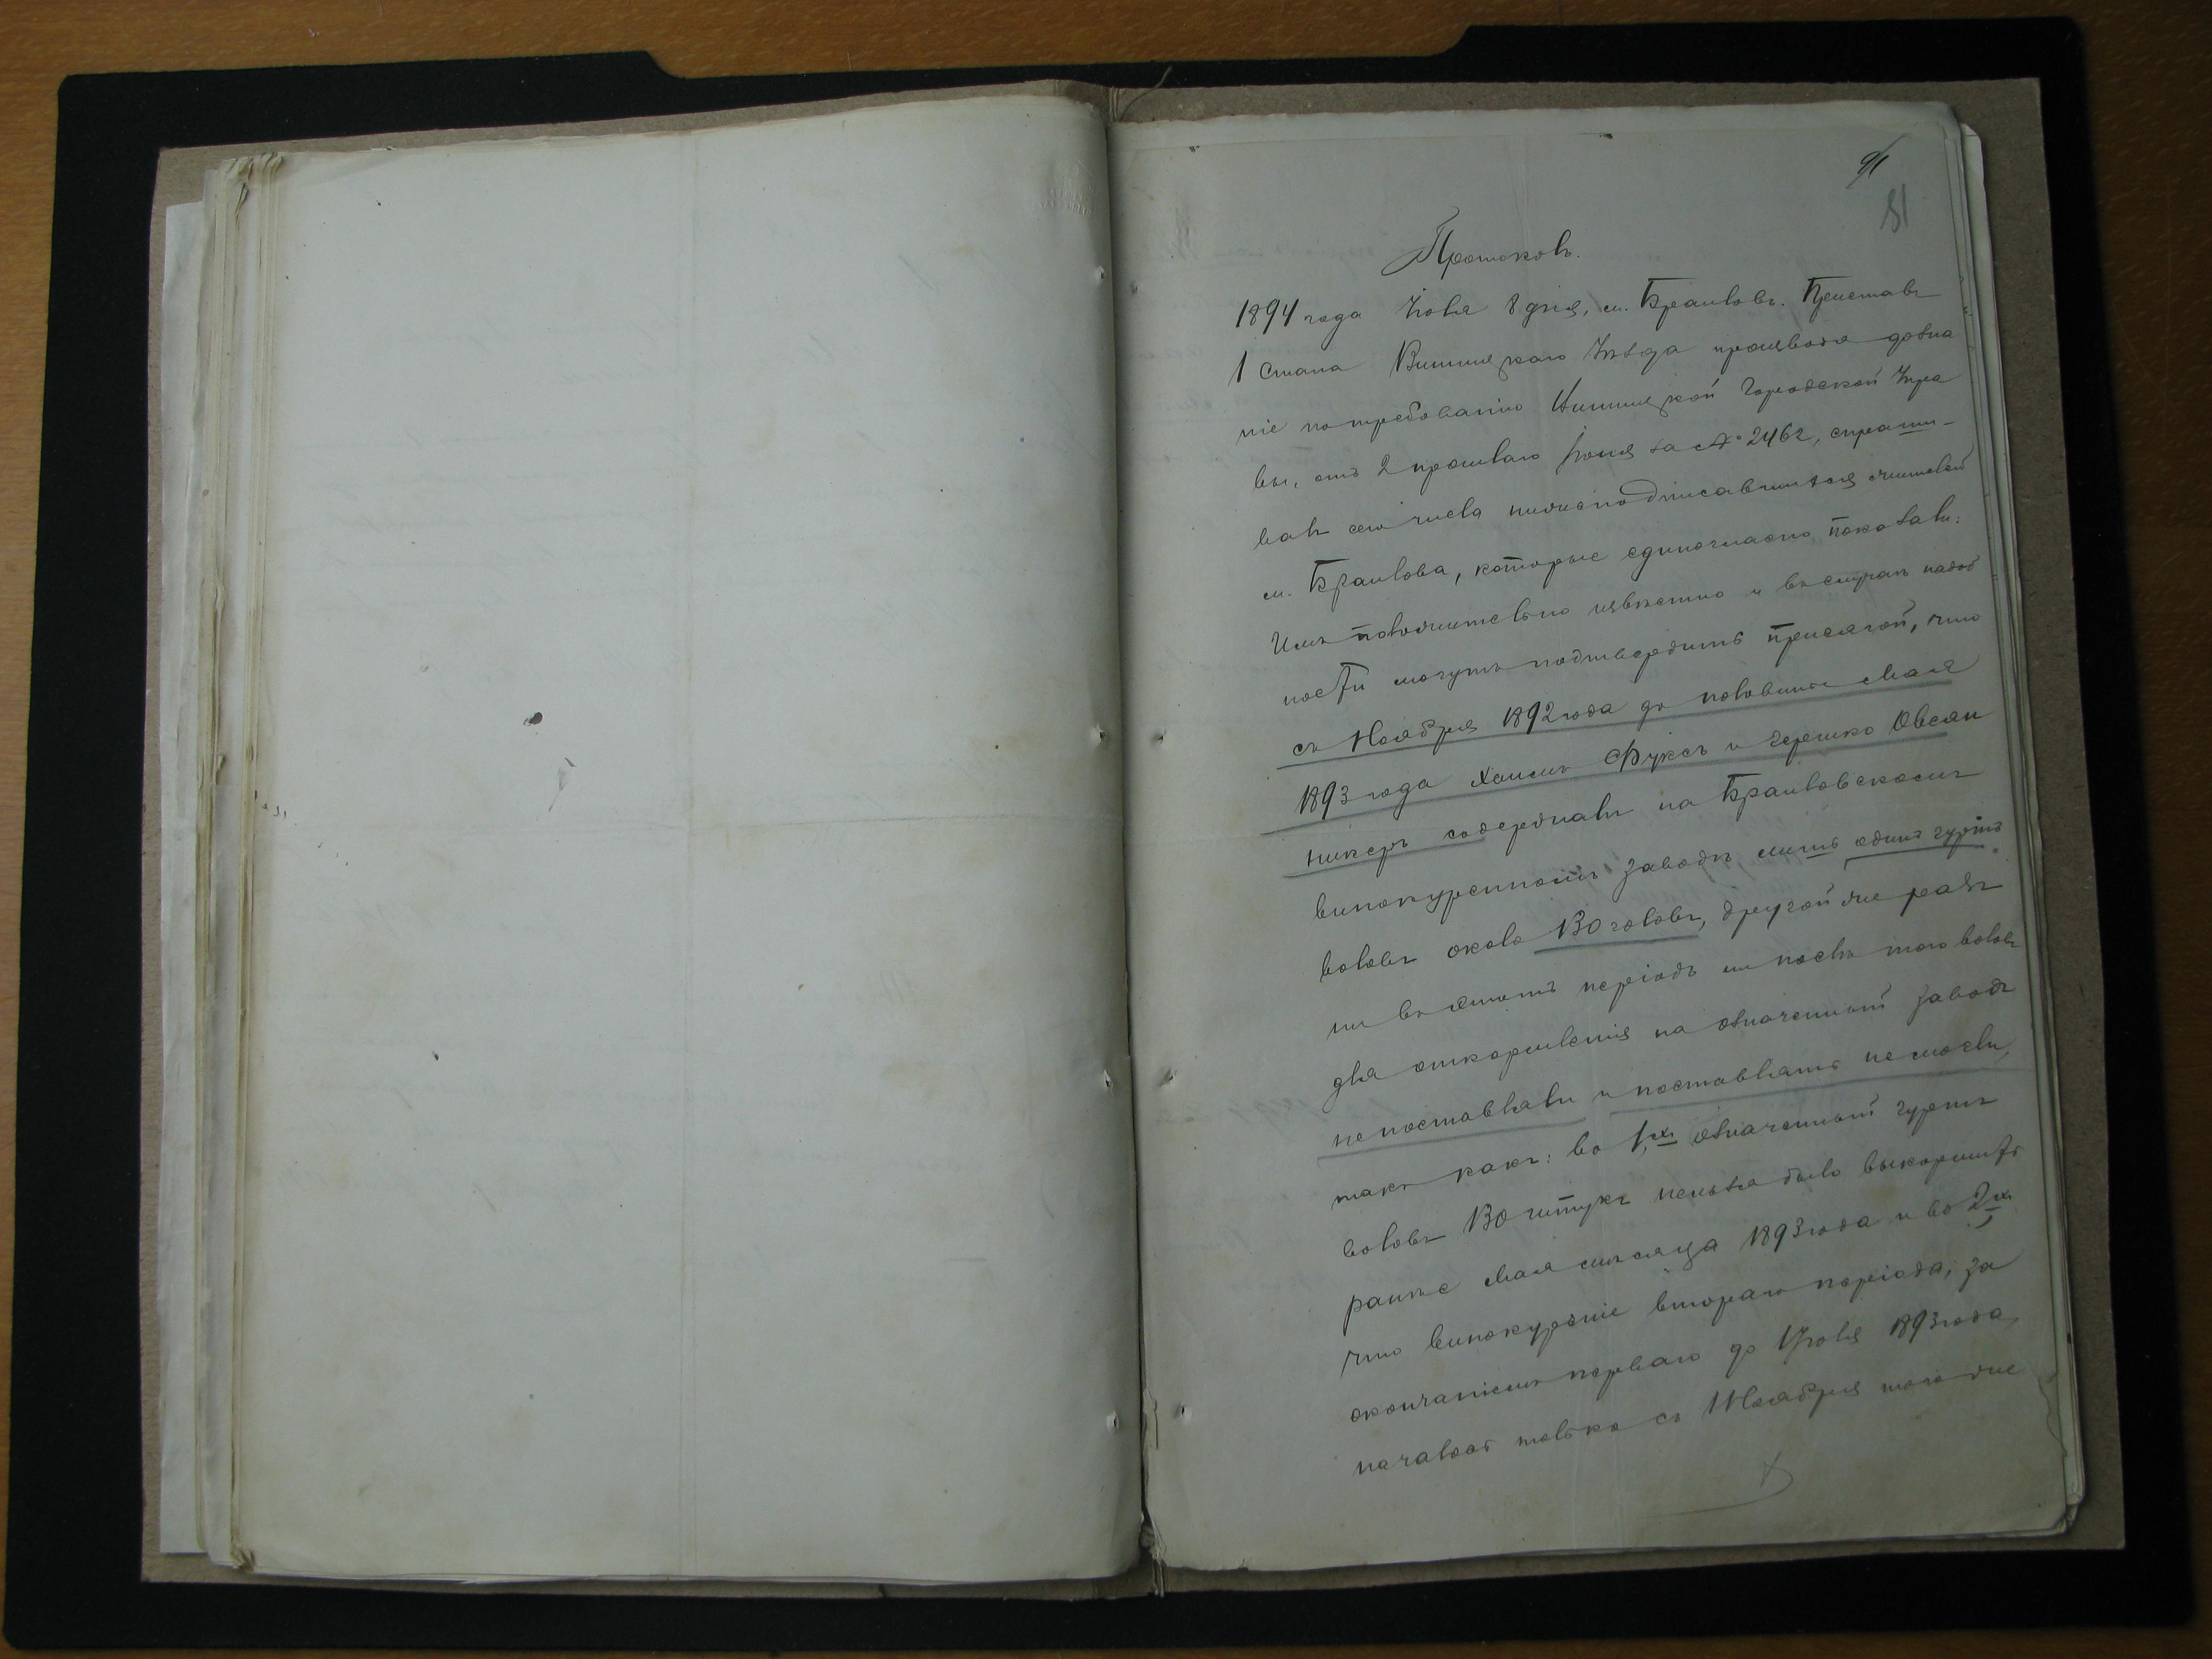 91
81
Протоколъ.
1894 года Іюля 8 дня, м. Браиловъ. Приставъ
1 Стана Винницкаго Уѣзда производя дозна
ніе по требованію Винницкой Городской Упра
вы, отъ 2 прошлаго Іюня за № 2462, спраши-
валъ сего числа нижеподписавшихся жителей
м. Браилова, которые единогласно показали:
Имъ положительно извѣстно и въ случаѣ надоб
ности могутъ подтвердить присягой, что
съ Ноября 1892 года до половины Мая
1893 года Хаимъ Фуксъ и Гершко Овсян
никеръ содержали на Браиловскомъ
винокуренномъ заводѣ лишь одинъ гуртъ
воловъ около 130 головъ, другой же разъ
ни въ этотъ періодъ ни послѣ того воловъ
для откормленія на означенный заводъ
не поставляли и поставлять не могли,
такъ какъ: во 1хъ означенный гуртъ
воловъ 130 штукъ нельзя было выкормить
раньше Мая мѣсяца 1893 года и во 2хъ
что винокуреніе втораго періода, за
окончаніемъ перваго до Іюля 1893 года,
началось только съ 1 Ноября того же